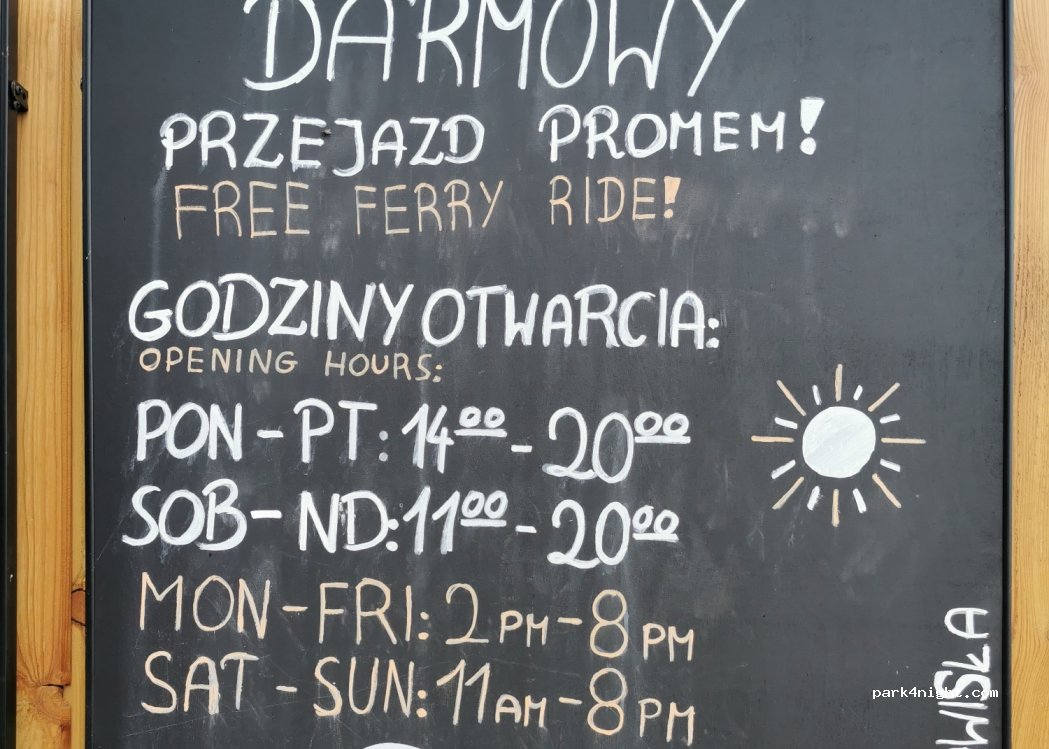 DARMOWY
PRZEJAZD PROMEM!
FREE FERRY RIDE!
GODZINY OTWARCIA:
OPENING HOURS:
PON - PT: 14⁰⁰ - 20⁰⁰
SOB - ND: 11⁰⁰ - 20⁰⁰
MON - FRI: 2 PM - 8 PM
SAT - SUN: 11 AM - 8 PM
WIŚŁA
park4night.com